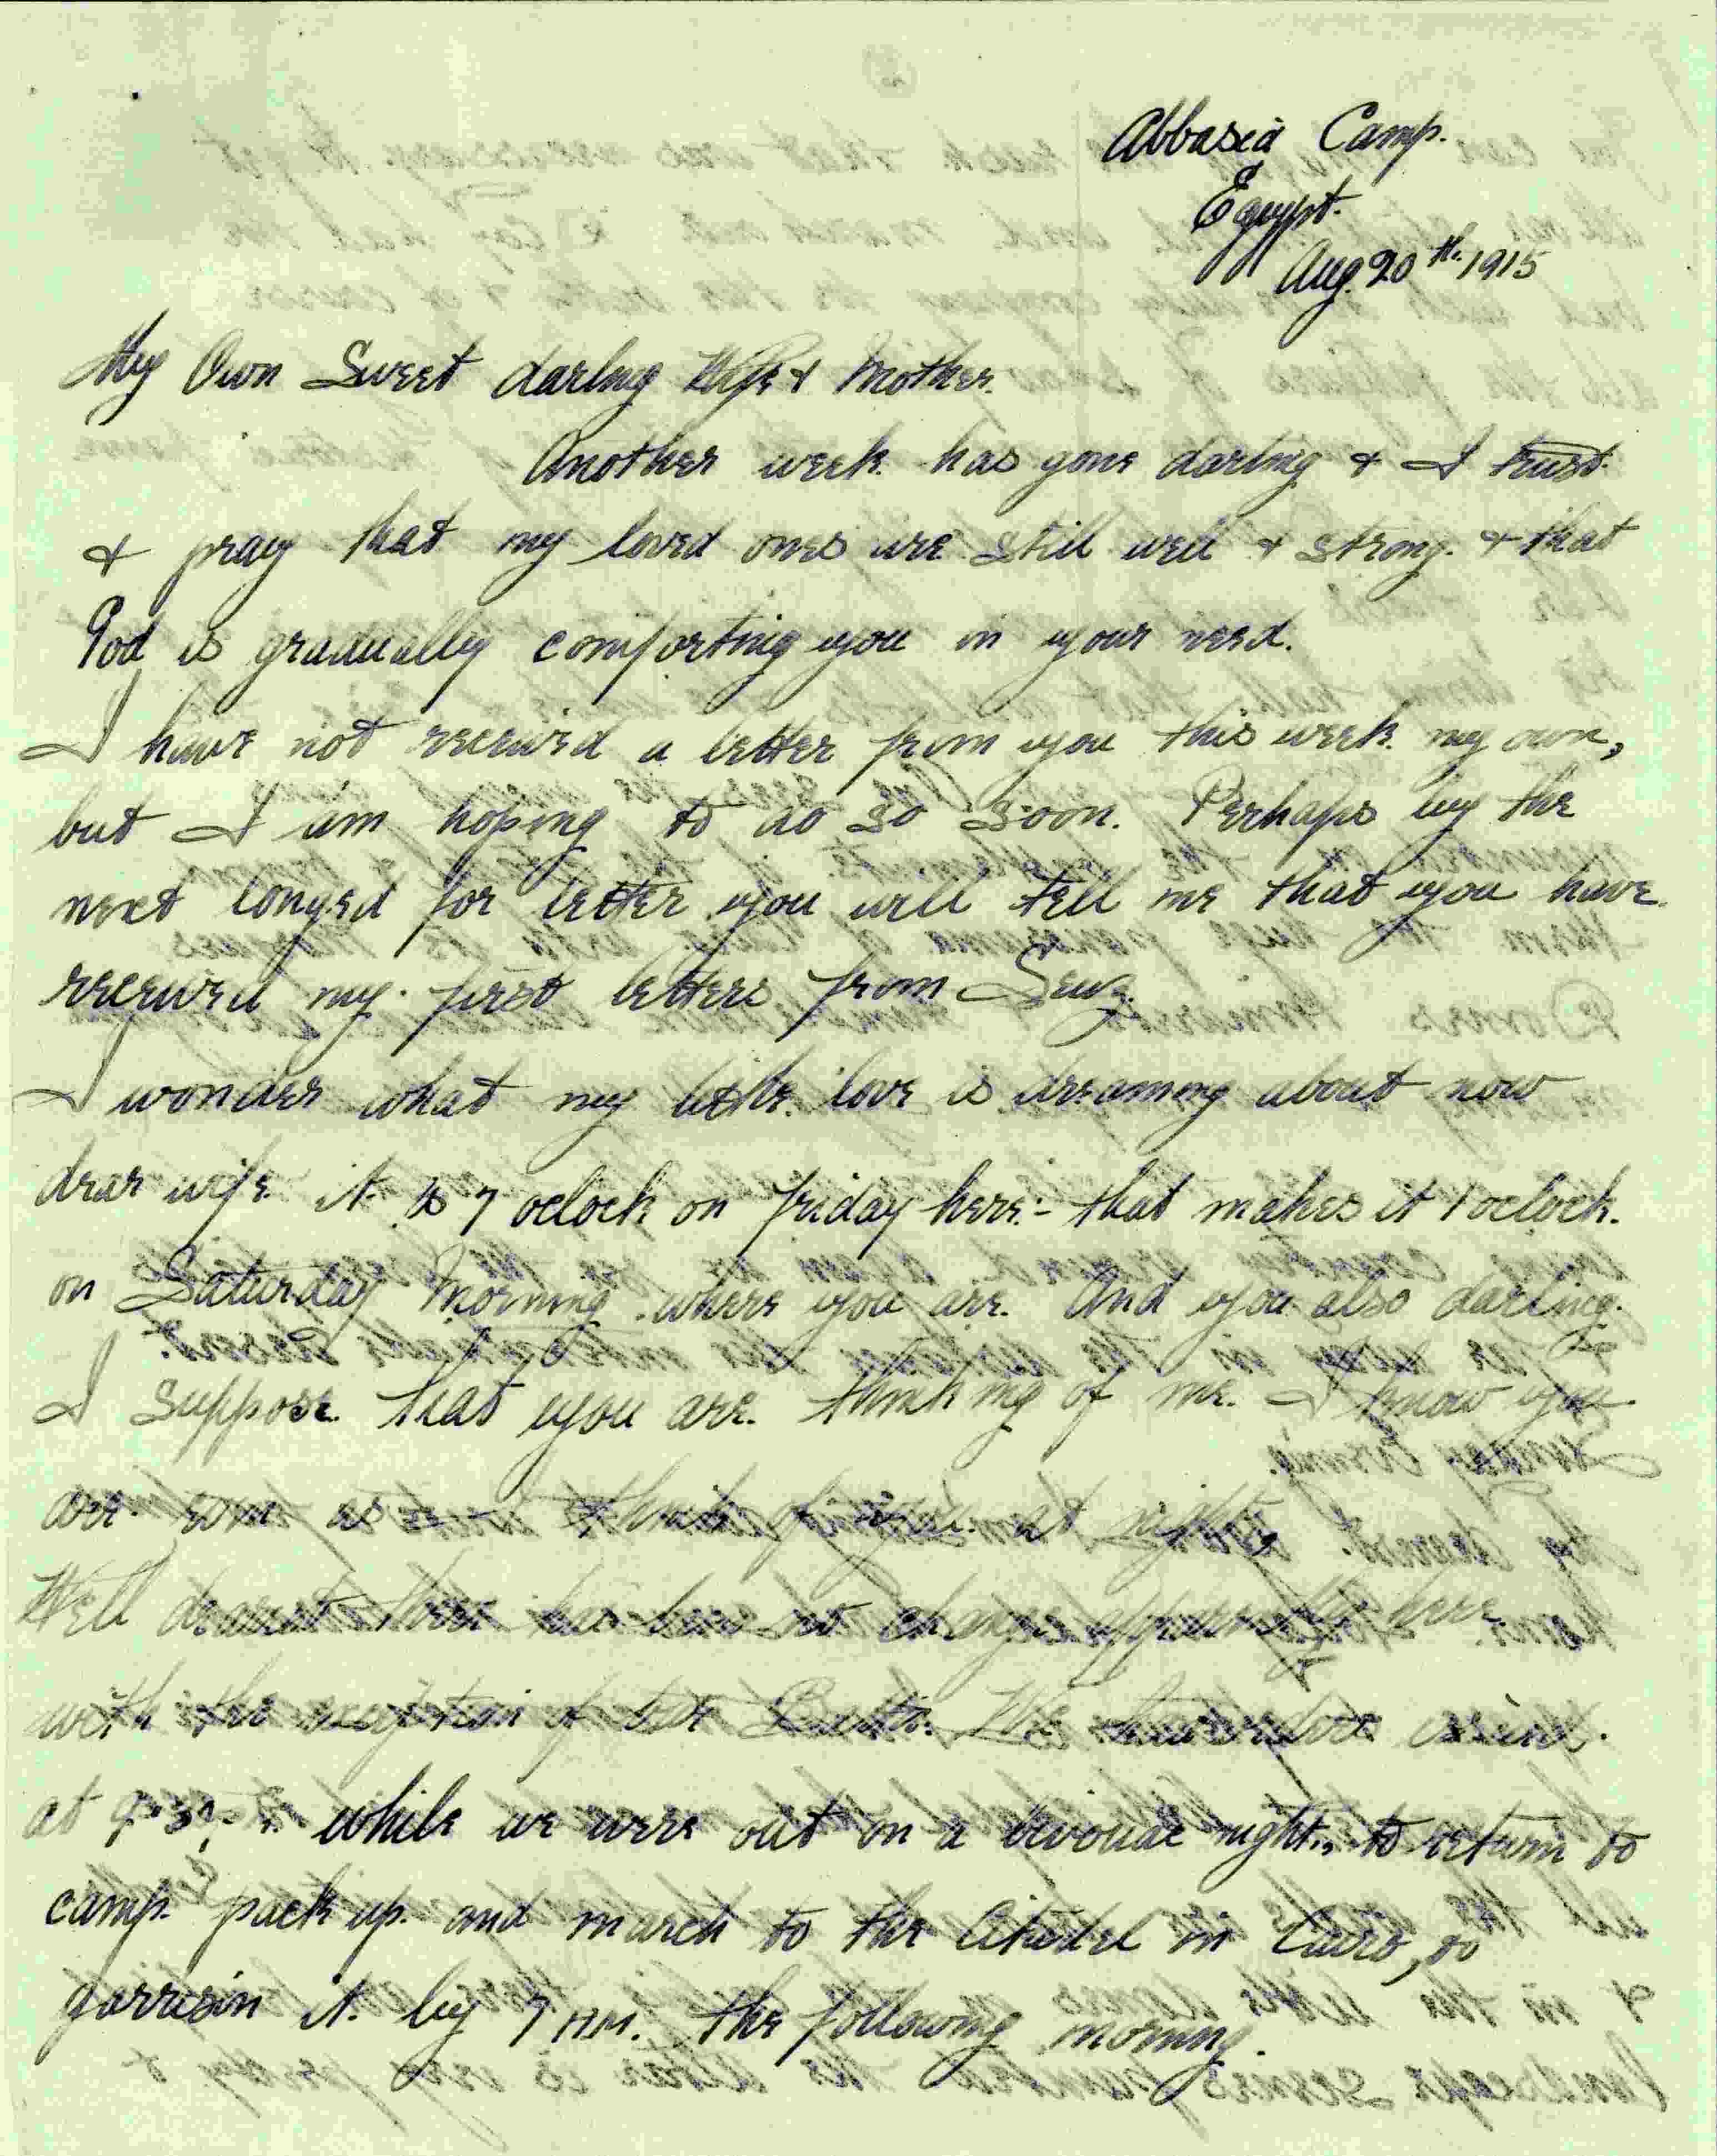 Abbasia Camp.
Egypt.
Aug. 20th. 1915
My Own Sweet darling Wife & Mother.
Another week has gone darling & I trust
& pray that my loved ones are still well & strong. & that
God is gradually comforting you in your need.
I have not received a letter from you this week my own,
but I am hoping to do so soon. Perhaps by the
next longed for letter you will tell me that you have
received my first letters from Suez.
I wonder what my little love is dreaming about now
dear wife it is 7 oclock on Friday here:- that makes it 1 oclock.
on Saturday Morning where you are. And you also darling.
I suppose that you are thinking of me. I know you
are as I think of you at night,
Well dearest there has been no change apparently here
with the exception of out We
at while we were out on a bivouac night., to return to
camp. pack up. and march to the Citadel in Cairo, to
garrison it. by 7 A.M. the following morning.